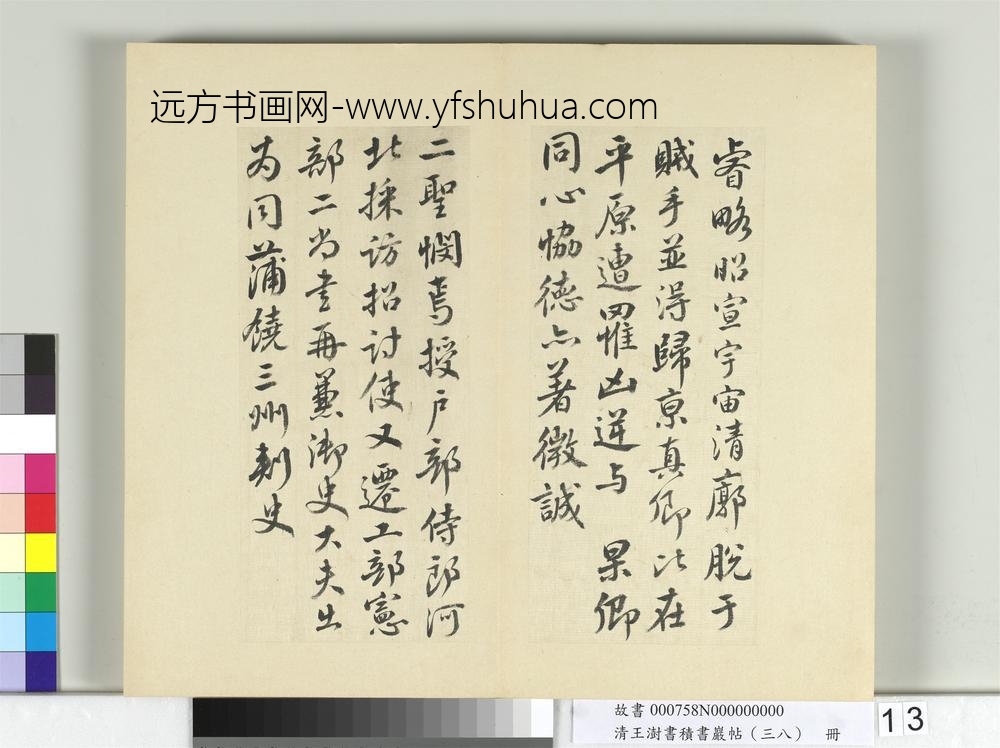 远方书画网-www.yfshuhua.com
睿略昭宣宇宙清廓脱于
贼手並得歸京真卿比在
平原遭罹凶逆与 杲卿
同心協德亦著微誠
二聖憫焉授户部侍郎河
北採訪招討使又遷工部憲
部二尚書再兼御史大夫出
为同蒲饒三州刺史
故書 000758N000000000
清王澍書積書巖帖（三八） 冊
13